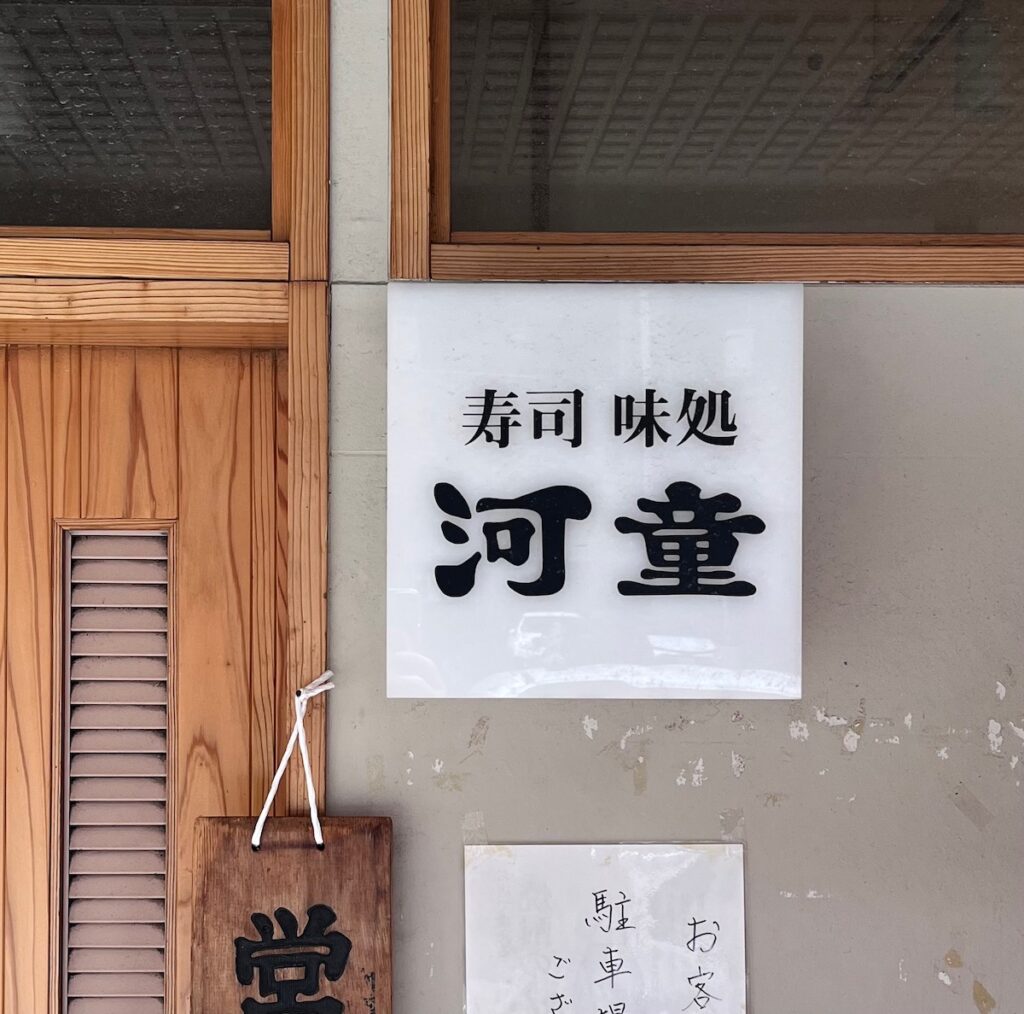 寿司 味処
河童
営
お客
駐車場
ござ